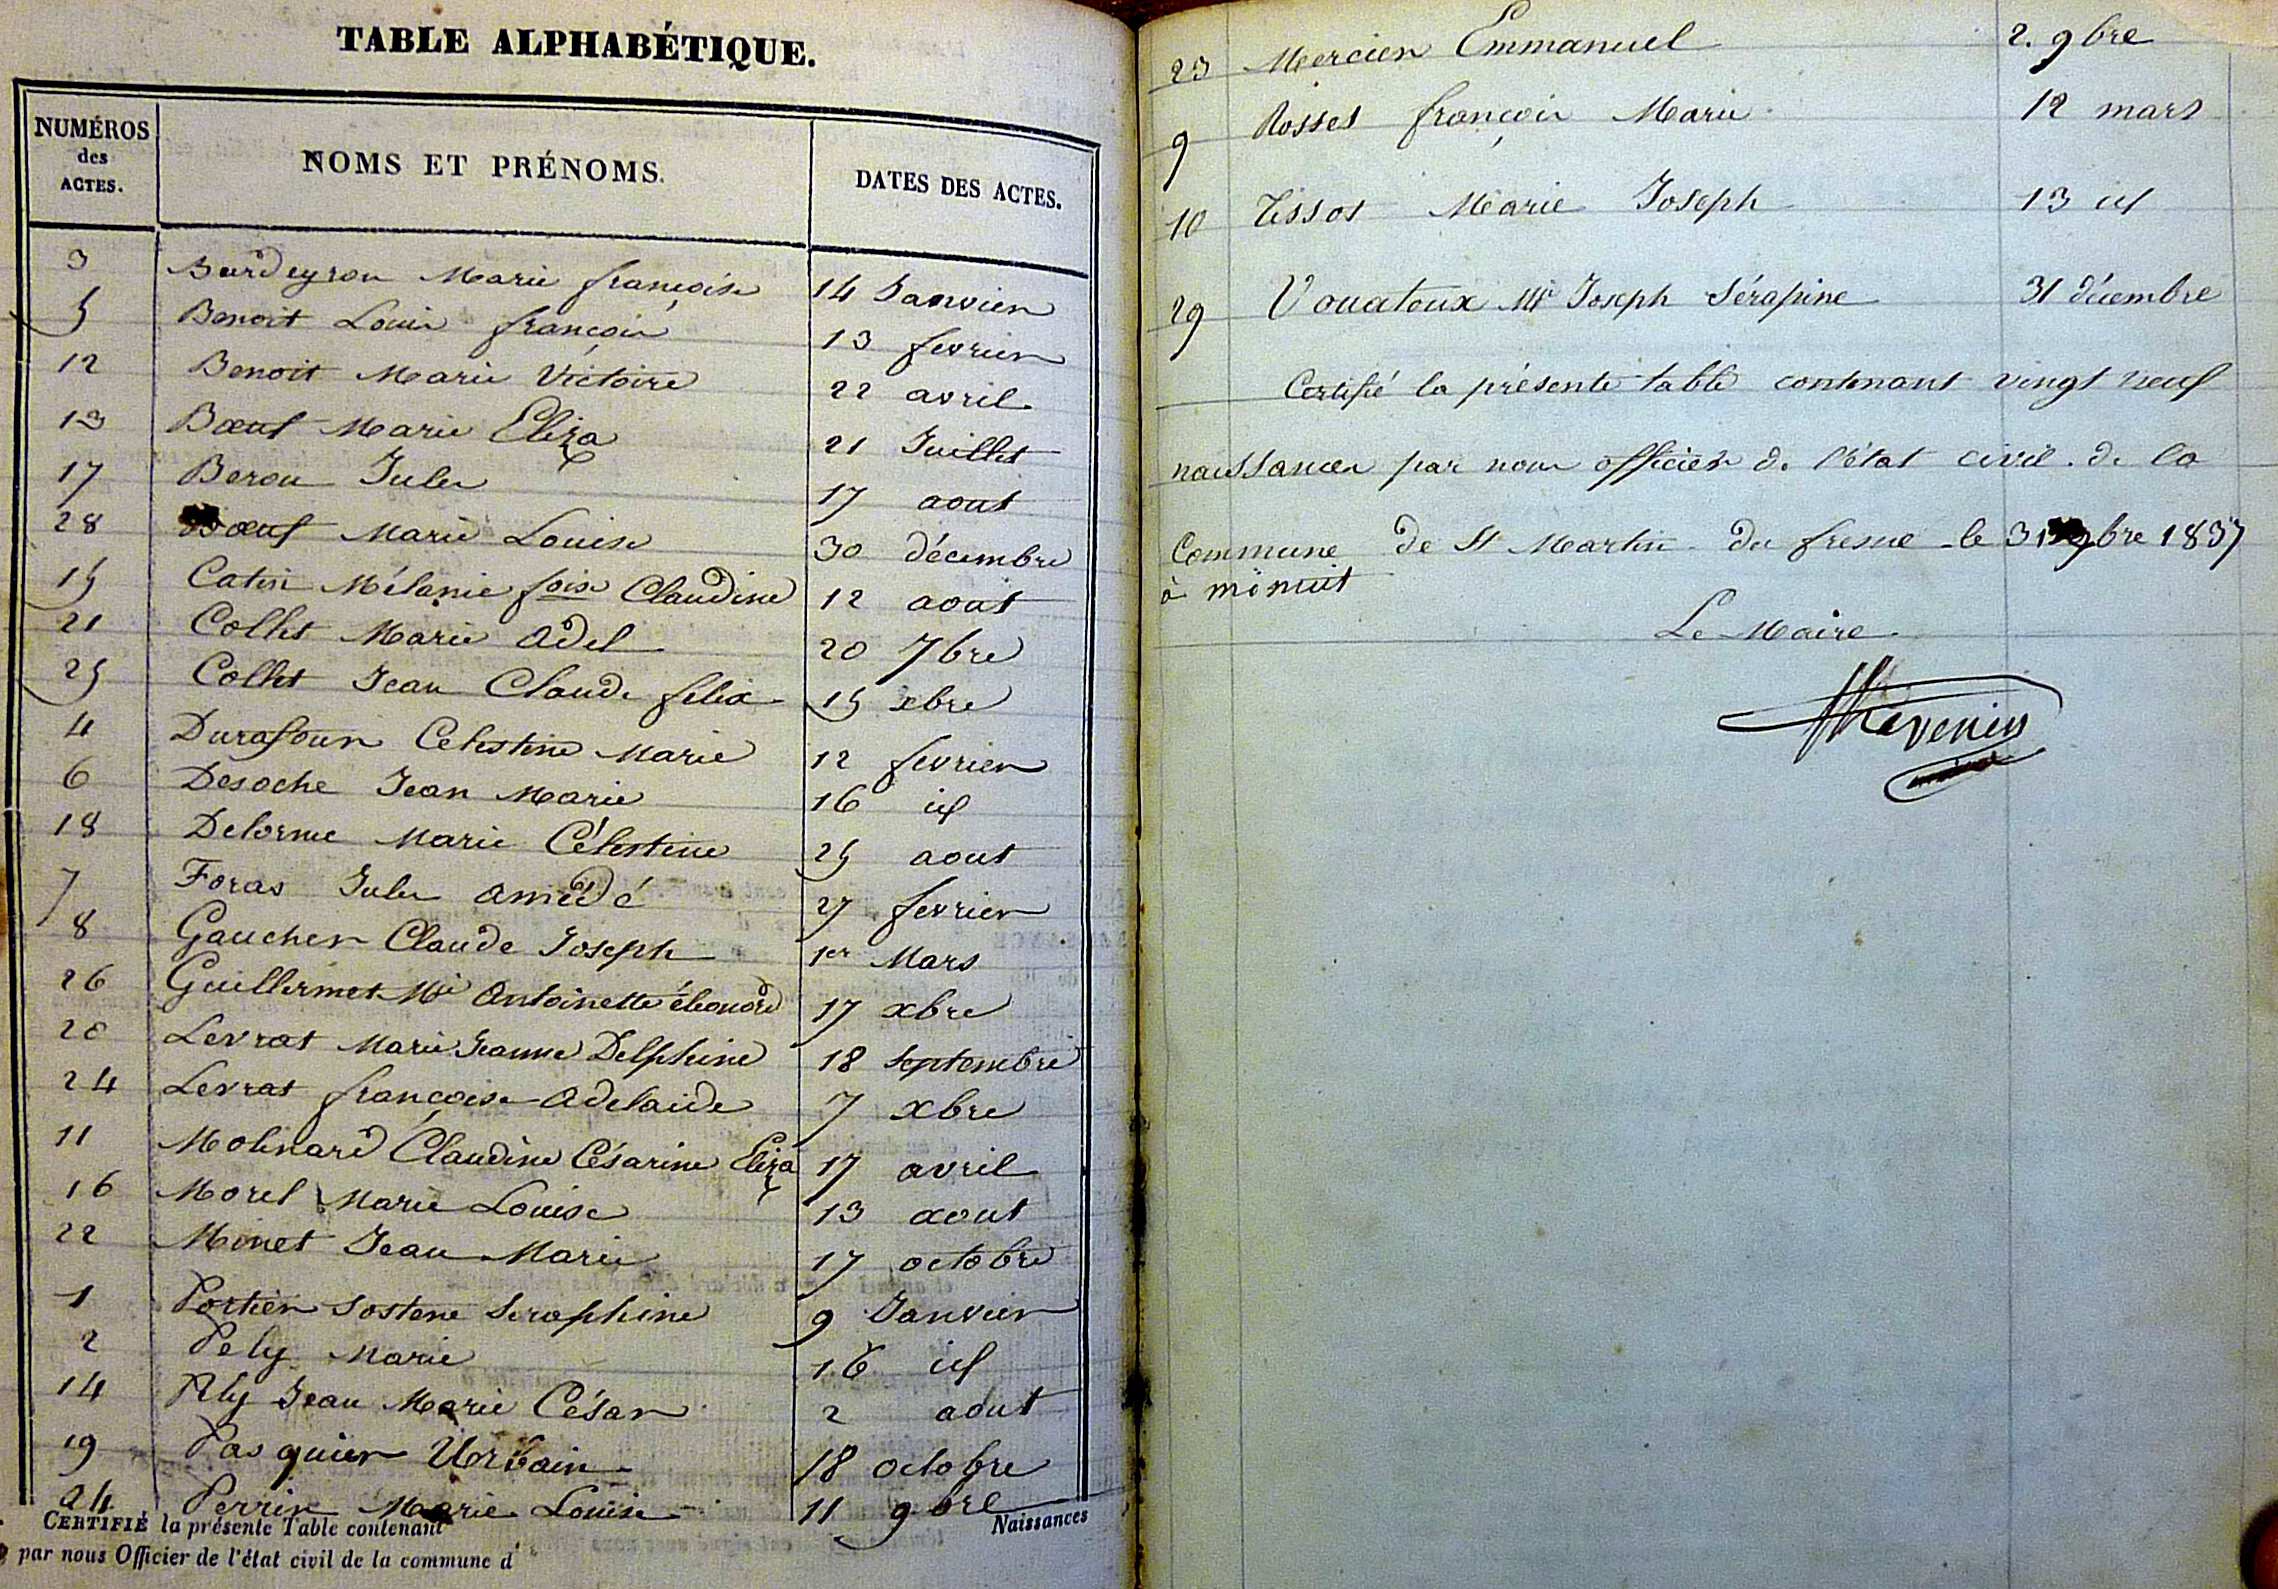 TABLE ALPHABÉTIQUE.
NUMÉROS des ACTES. NOMS ET PRÉNOMS. DATES DES ACTES.
3 Burdeyron Marie françoise 14 Janvier
5 Benoit Louis françois 13 fevrier
12 Benoit Marie Victoire 22 avril
13 Bœuf Marie Eliza 21 Juillet
17 Berou Jules 17 aout
28 Bœuf Marie Louise 30 décembre
15 Catin Mélanie foise Claudine 12 aout
21 Collet Marie Adel 20 7bre
25 Collet Jean Claude felix 15 xbre
4 Durafour Celestine Marie 12 fevrier
6 Desoche Jean Marie 16 id
18 Delorme Marie Célestine 25 aout
7 Foras Jules amédé 27 fevrier
8 Gaucher Claude Joseph 1er Mars
26 Guillermet Mie Antoinette éléonord 17 xbre
20 Levrat Marie Jeanne Delphine 18 septembre
24 Levrat françoise Adelaide 7 xbre
11 Molinard Claudine Césarine Eliza 17 avril
16 Morel Marie Louise 13 aout
22 Minet Jean Marie 17 octobre
1 Portier Sostene Seraphine 9 Janvier
2 Pely Marie 16 id
14 Pely Jean Marie César 2 aout
19 Pasquier Urbain 18 octobre
24 Perrin Marie Louise 11 9bre
CERTIFIÉ la présente Table contenant Naissances
par nous Officier de l'état civil de la commune d
23 Mercier Emmanuel 2. 9bre
9 Rosset françois Marie 12 mars
10 Tissot Marie Joseph 13 id
29 Vouatoux Mie Joseph Sérapine 31 décembre
Certifié la présente table contenant vingt neuf
naissances par nous officier de l'état civil de la
Commune de St Martin du fresne le 31 bre 1837
à minuit
Le Maire
Thevenin